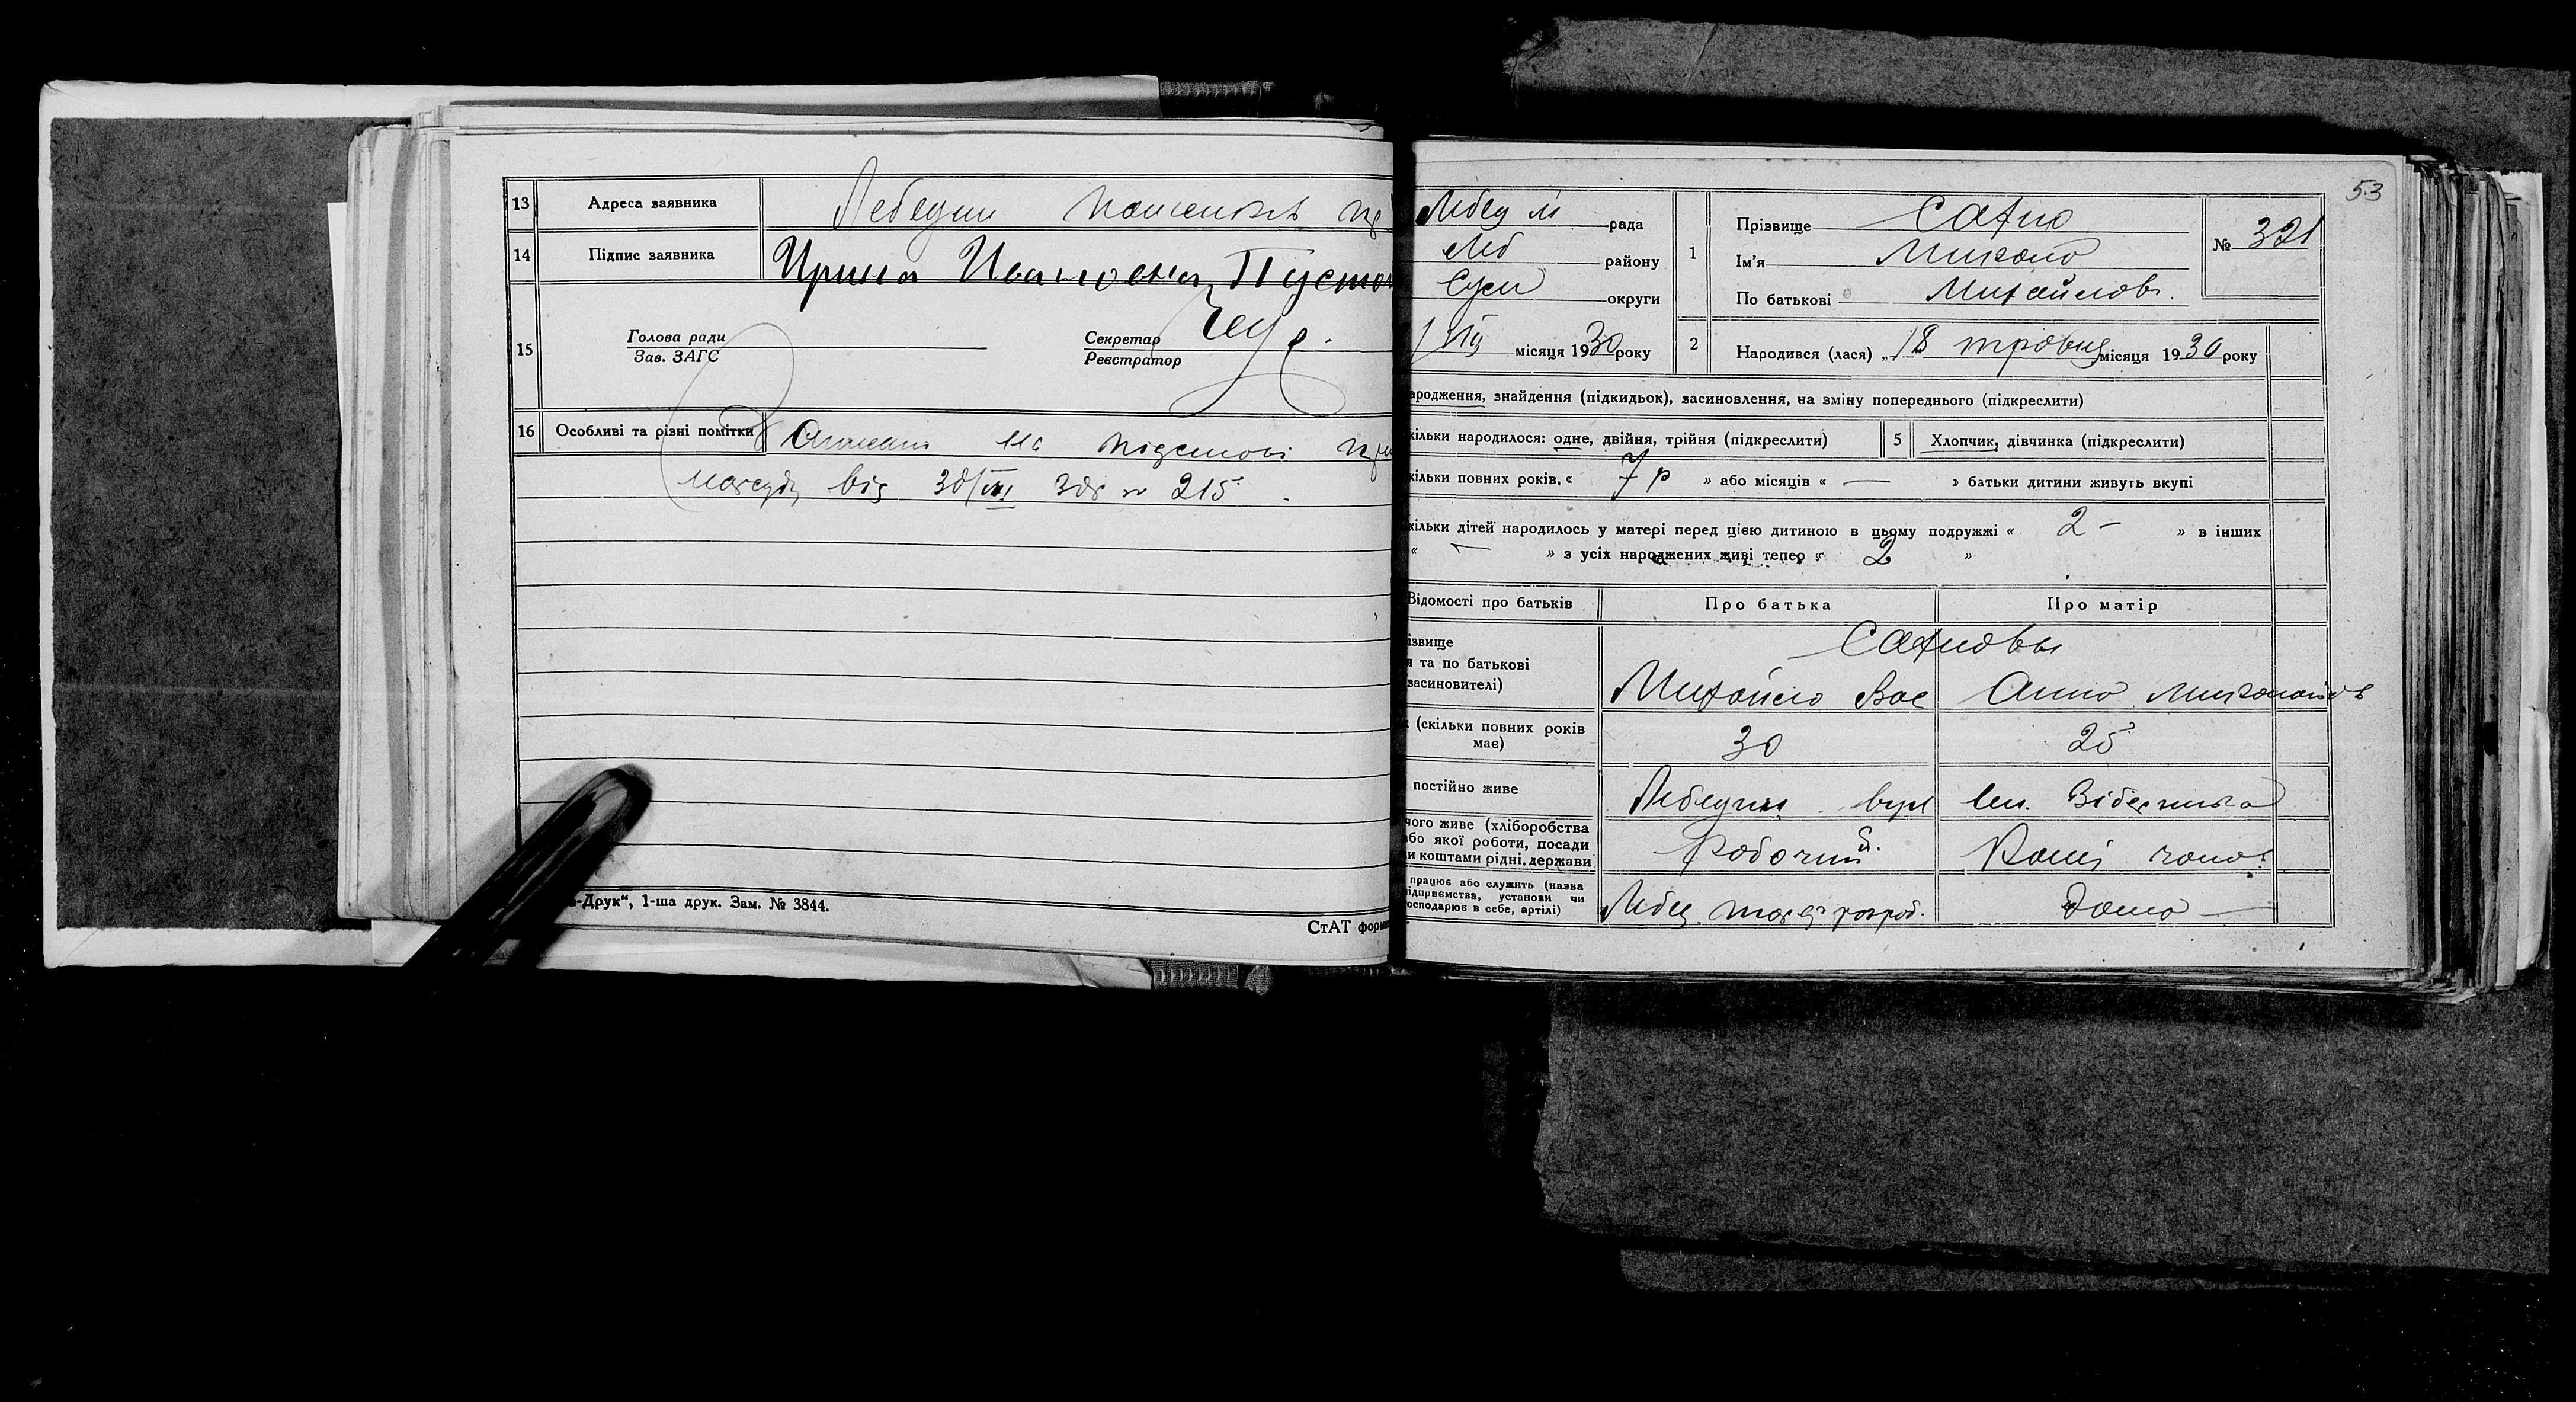 13 Адреса заявника Лебедин
14 Підпис заявника Ирина Ивановна Пустов
15 Голова ради
Зав. ЗАГС
Секретар
Реєстратор
16 Особливі та різні помітки на підставі
від 30/VIII 30р № 215.
-Друк“, 1-ша друк. Зам. № 3844.
СтАТ форма
53
Лебед м рада
Леб району
Сум округи
місяця 1930 року
1 Прізвище Сахно
Ім'я Микола
По батькові Михайлов.
№ 321
2 Народився (лася) „18 травня місяця 1930 року
ародження, знайдення (підкидьок), засиновлення, на зміну попереднього (підкреслити)
кільки народилося: одне, двійня, трійня (підкреслити)
5 Хлопчик, дівчинка (підкреслити)
кільки повних років, « 7 р » або місяців « — » батьки дитини живуть вкупі
кільки дітей народилось у матері перед цією дитиною в цьому подружжі « 2 – » в інших
« — » з усіх народжених живі тепер « 2 »
Відомості про батьків
Про батька
Про матір
ізвище
я та по батькові
засиновителі)
Сахновы
Михайло Вас
Анна Миколаївн
(скільки повних років
має)
30
25
постійно живе
Лебедин вул
чого живе (хліборобства
або якої роботи, посади
и коштами рідні, держави
Робочий.
працює або служить (назва
ідприємства, установи чи
осподарює в себе, артілі)
Лебед.
дома —